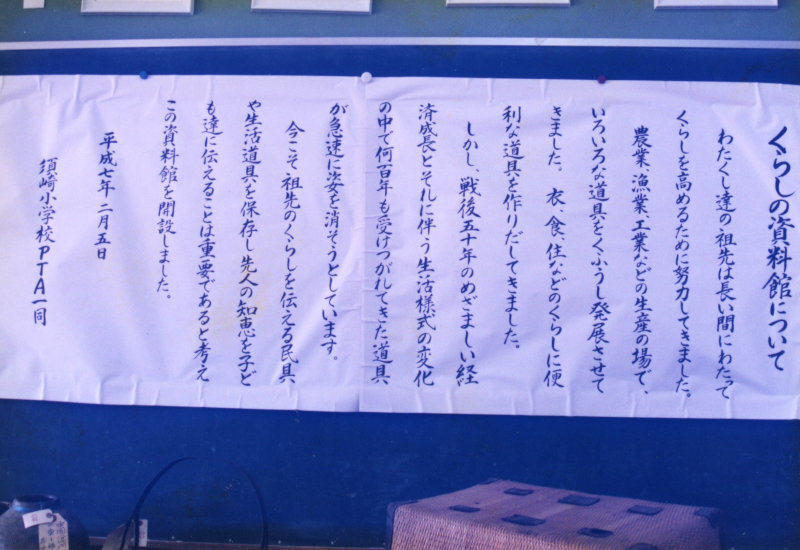 くらしの資料館について
わたくし達の祖先は長い間にわたって
くらしを高めるために努力してきました。
農業、漁業、工業などの生産の場で、
いろいろな道具をくふうし発展させて
きました。衣、食、住などのくらしに便
利な道具を作りだしてきました。
しかし、戦後五十年のめざましい経
済成長とそれに伴う生活様式の変化
の中で何百年も受けつがれてきた道具
が急速に姿を消そうとしています。
今こそ祖先のくらしを伝える民具
や生活道具を保存し先人の知恵を子ど
も達に伝えることは重要であると考え
この資料館を開設しました。
平成七年 二月五日
須崎小学校PTA一同